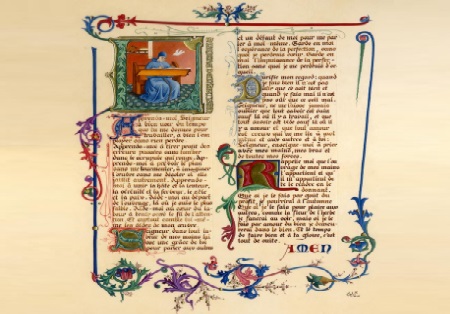 Apprends-moi, Seigneur
à bien user du temps
que tu me donnes pour
travailler, à bien l'em
ployer sans rien perdre.
Apprends-moi à tirer profit des
erreurs passées sans tomber
dans le scrupule qui ronge. Ap-
prends-moi à prévoir le plan
sans me tourmenter, à imaginer
l'œuvre sans me désoler si elle
jaillit autrement. Apprends-
moi à unir la hâte et la lenteur,
la sérénité et la ferveur, le zèle
et la paix. Aide-moi au départ
de l'ouvrage, là où je suis le plus
faible. Aide-moi au cœur du la-
beur à tenir serré le fil de l'atten-
tion. Et surtout comble toi-mê-
me les vides de mon œuvre.
Seigneur dans tout la-
beur de mes mains lai-
sse une grâce de toi
pour parler aux autres
et un défaut de moi pour me par
ler à moi-même. Garde en moi
l'espérance de la perfection, sans
quoi je perdrais cœur. Garde-
moi dans l'impuissance de la perfec-
tion sans quoi je me perdrais d'or-
gueil.
Purifie mon regard: quand
je fais mal il n'est pas
sûr que ce soit mal et
quand je fais bien il n'est
pas sûr que ce soit bien.
Seigneur, ne me laisse jamais
oublier que tout savoir est vain
sauf là où il y a travail, et que
tout travail est vide sauf là où il
y a amour et que tout amour
est creux qui ne me lie à moi
et aux autres et à toi.
Seigneur, enseigne-moi à prier
avec mes mains, mes bras et
toutes mes forces.
Rappelle moi que l'ou-
vrage de mes mains
t'appartient et qu'il
m'appartient de
te le rendre en le
donnant.
Que si je fais par goût du
profit, je pourrirai à l'automne.
Que si je fais pour plaire aux
autres, comme la fleur de l'herbe
je fanerai au soir, mais si je
fais par amour du bien je demeu-
rerai dans le bien. Et le temps
de faire bien et à ta gloire, c'est
tout de suite.
AMEN